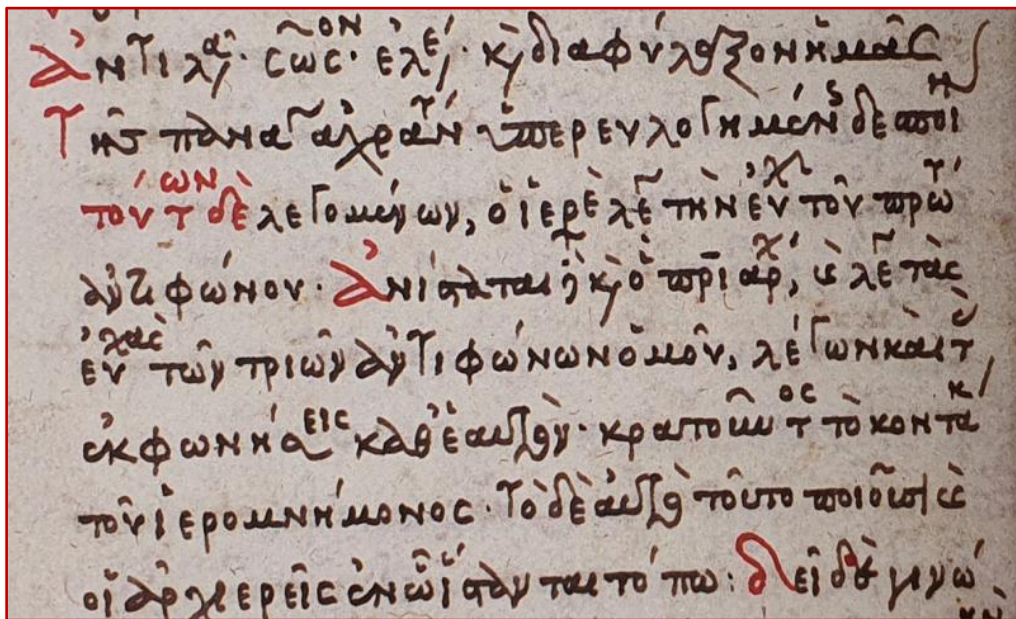 Ἀντιλα· σῶσον· ἐλέ· κ διαφύλαξον ἡμᾶς
Τῆς παναγ ἀχράντ ὑπερευλογημέν δεσποί
τούτων δὲ λεγομένων, ὁ ἱερε λέγ τὴν εὐχ τοῦ πρώτ
ἀντιφώνου. Ἀνίσταται κ ὁ πριαρχ, κ λέγ τὰς
εὐχὰς τῶν τριῶν ἀντιφώνων ὁμοῦ, λέγων καὶ τ
ἐκφωνήσεις καθ ἑαυτὸν· κρατοῦντος τὸ κοντάκ
τοῦ ἱερομνήμονος. Τὸ δὲ αὐτὸ τοῦτο ποιοῦσι κ
οἱ ἀρχιερεῖς ἐν ὧ ἵστανται τόπω: δεῖ δὲ γινώ